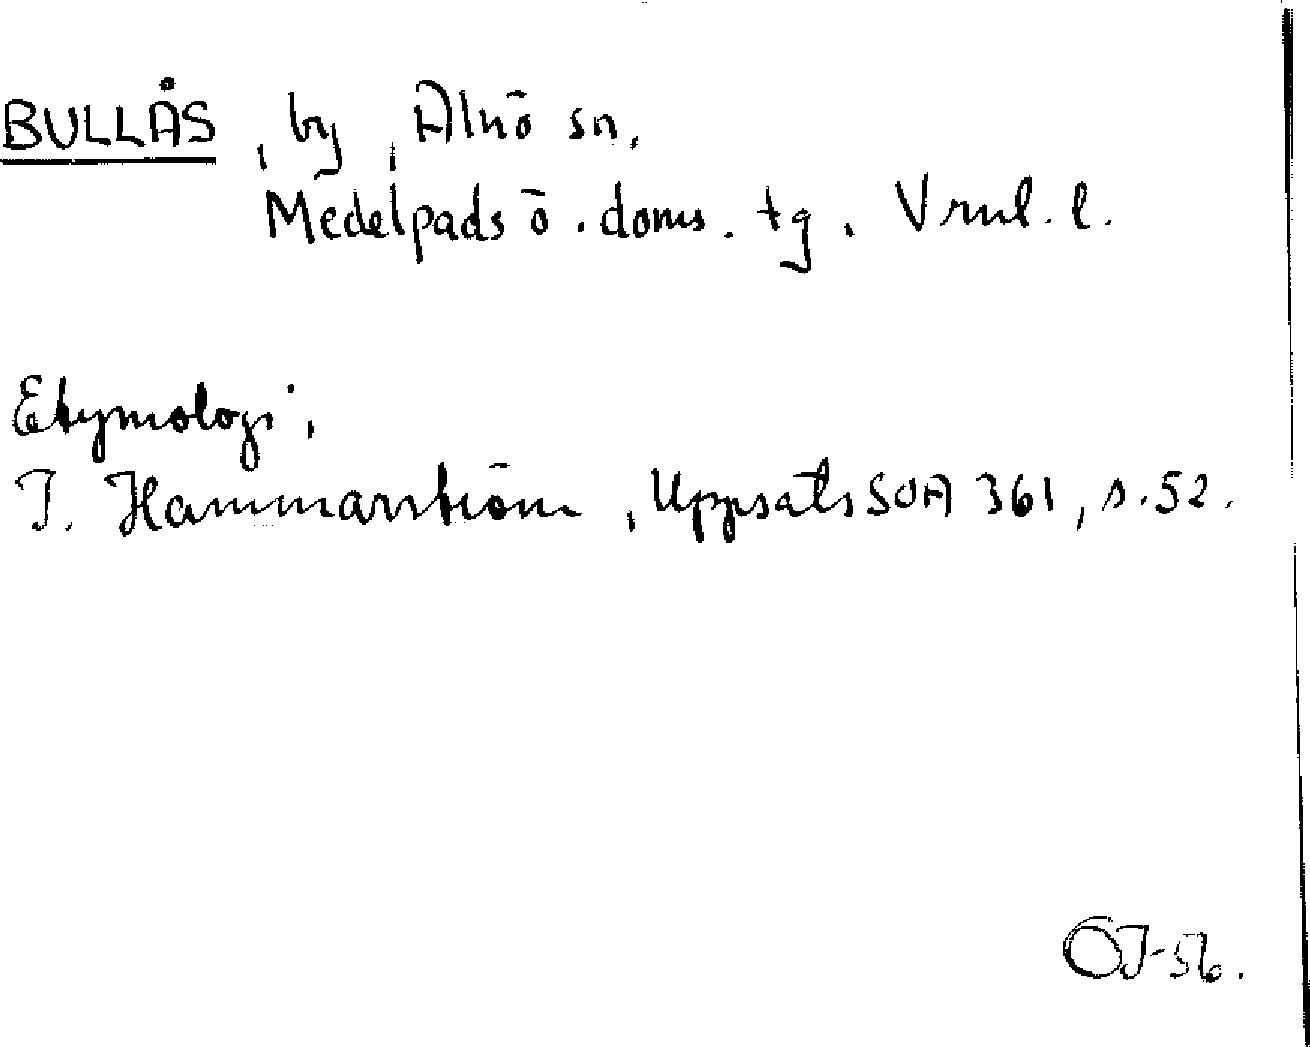 BULLÅS, by, Alnö sn,
Medelpads ö. doms. tg. Vrnl. l.
Etymologi,
I. Hammarström, Uppsats SOA 361, s. 52.
OJ-56.